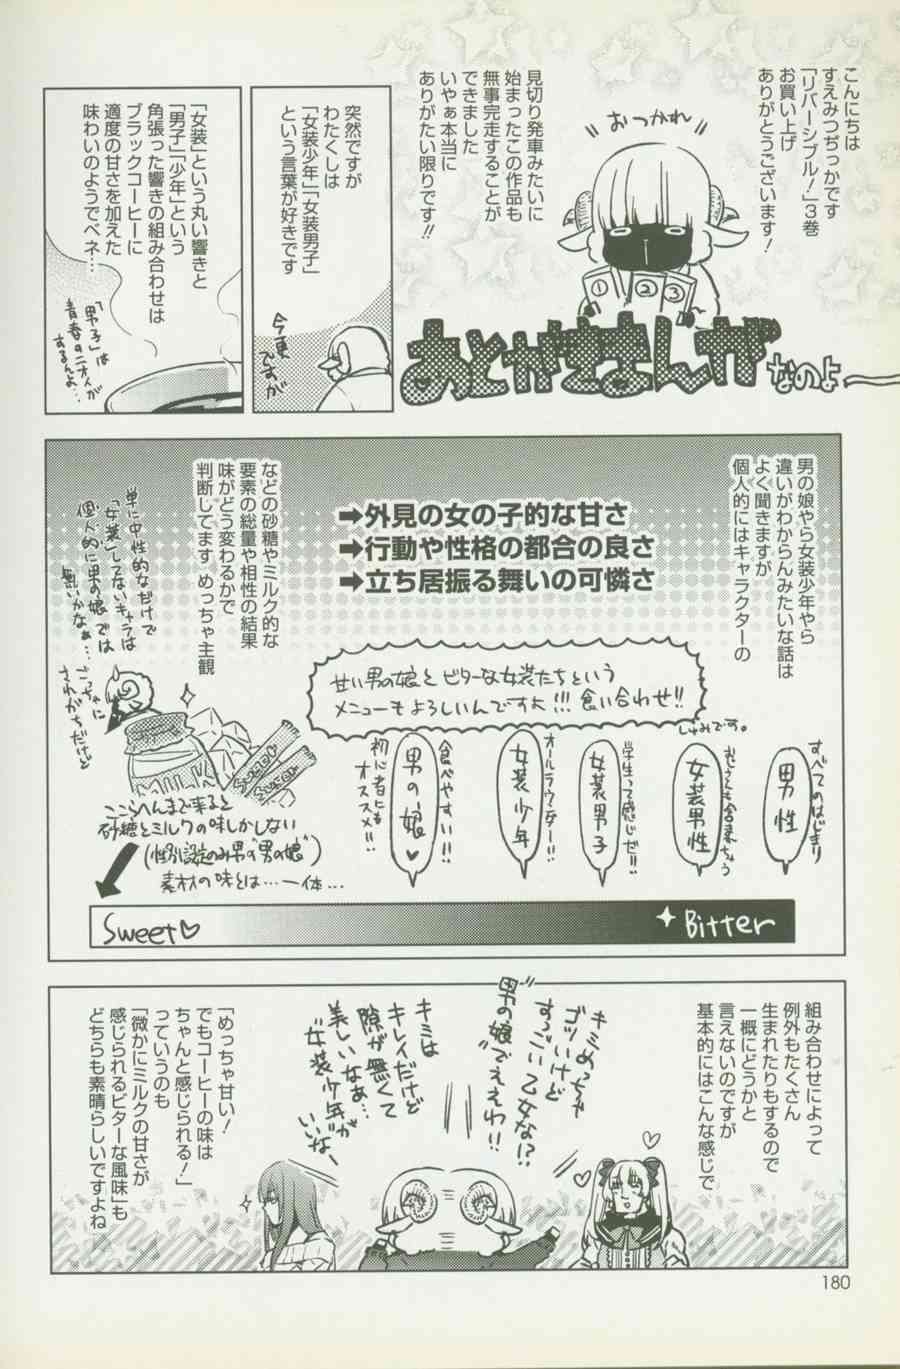 こんにちは
すえみつぢっかです
「リバーシブル！」3巻
お買い上げ
ありがとうございます！
おつかれ
①
②
③
見切り発車みたいに
始まったこの作品も
無事完走することが
できました
いやぁ本当に
ありがたい限りです!!
あとがきまんが
なのよ
突然ですが
わたくしは
「女装少年」「女装男子」
という言葉が好きです
今更
ですが
「女装」という丸い響きと
「男子」「少年」という
角張った響きの組み合わせは
ブラックコーヒーに
適度の甘さを加えた
味わいのようでベネ…
「男子」は
青春のニオイが
するんよ…
男の娘やら女装少年やら
違いがわからんみたいな話は
よく聞きますが
個人的にはキャラクターの
➡外見の女の子的な甘さ
➡行動や性格の都合の良さ
➡立ち居振る舞いの可憐さ
などの砂糖やミルク的な
要素の総量や相性の結果
味がどう変わるかで
判断してます めっちゃ主観
単に中性的なだけで
「女装」してないキャラは
個人的に男の娘では
無いかなぁ…
ごっちゃに
されがちだけど
甘い男の娘と ビターな女装たちという
メニューもよろしいんですよ!!! 食い合わせ!!
しゅみです。
すべてのはじまり
男性
女装男性
学生って感じだ!!
女装男子
オールラウンダー!!
女装少年
食べやすい!!
男の娘♥
初心者にも
オススメ!!
MILK
Sugar
Sugar
ここらへんまで来ると
砂糖とミルクの味しかしない
(性別設定のみ男の"男の娘")
素材の味とは…一体…
Sweet♡
Bitter
組み合わせによって
例外もたくさん
生まれたりもするので
一概にどうかと
言えないのですが
基本的にはこんな感じで
キミめっちゃ
ゴツいけど
すっごい乙女な!?
"男の娘"でええわ!!
キミは
キレイだけど
隙が無くて
美しいなぁ…
"女装少年"が
いいな
「めっちゃ甘い！
でもコーヒーの味は
ちゃんと感じられる！」
っていうのも
「微かにミルクの甘さが
感じられるビターな風味」も
どちらも素晴らしいですよね
180